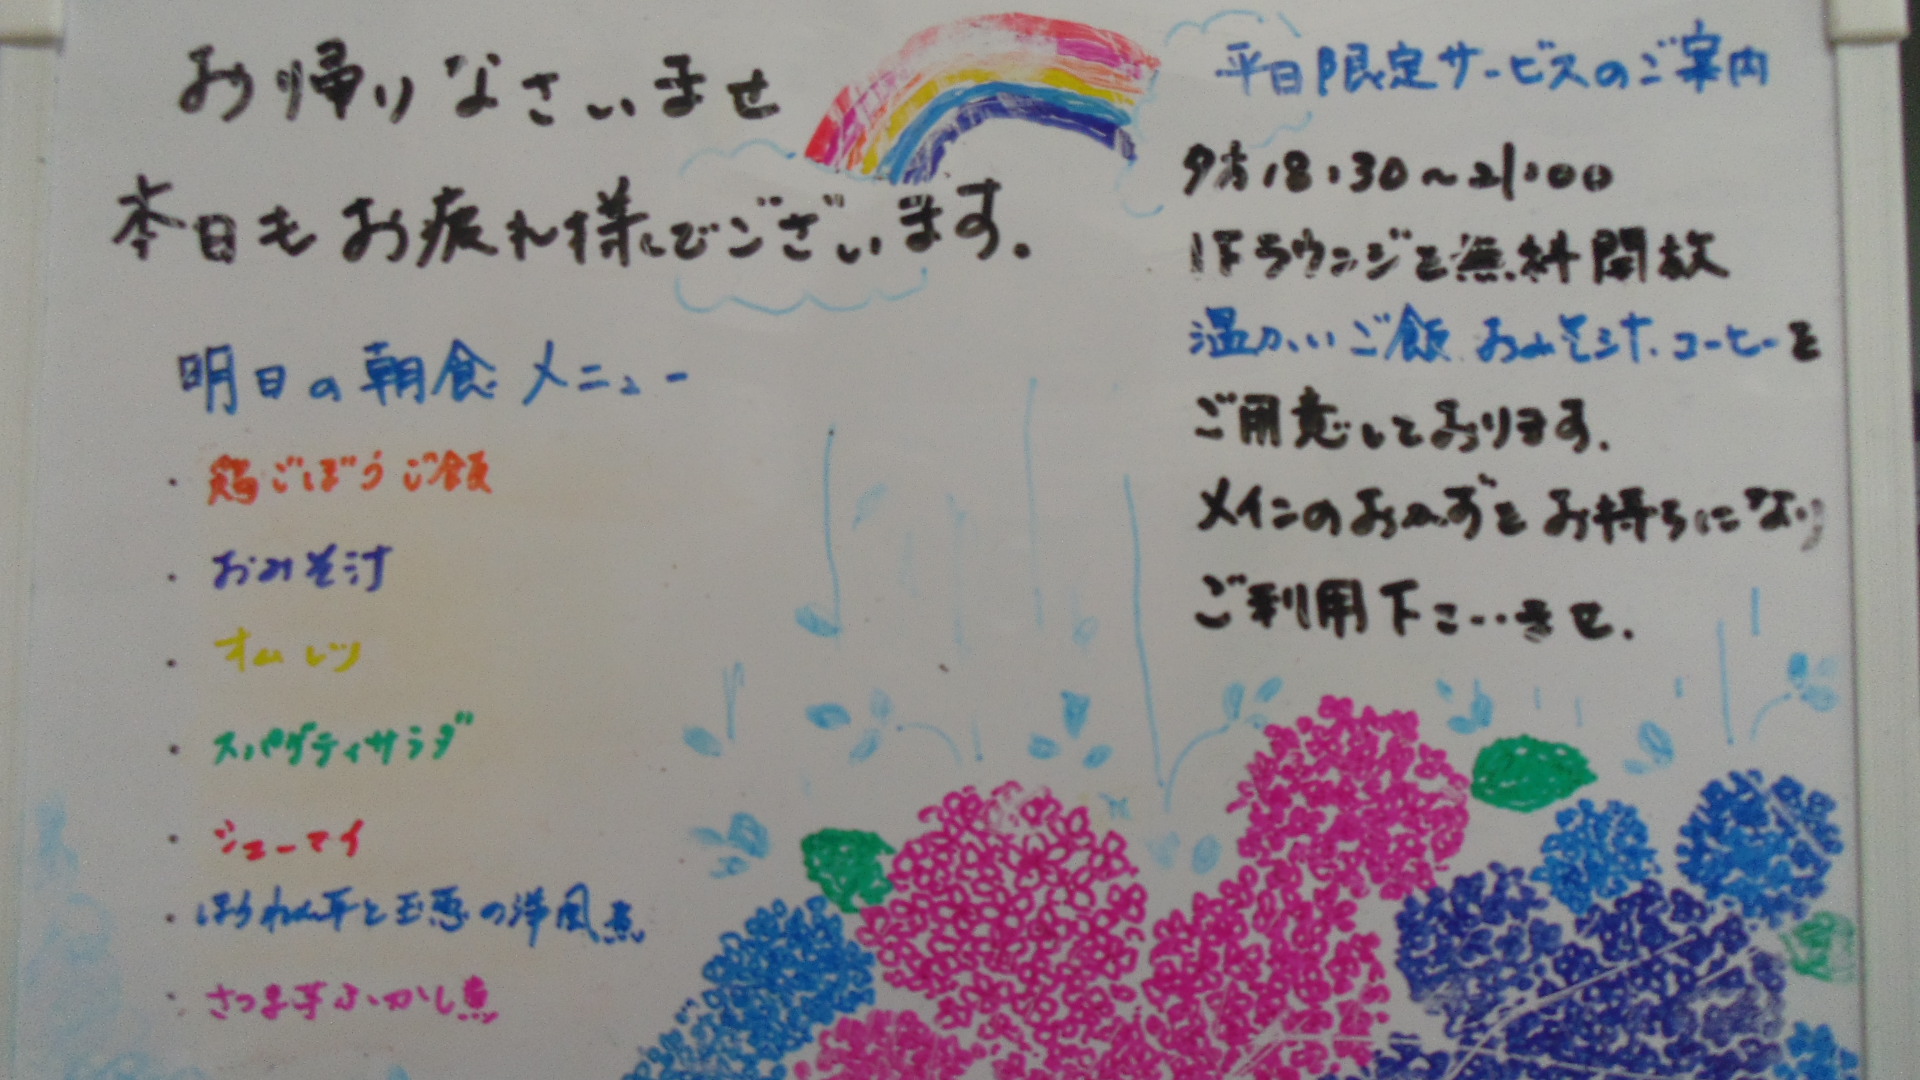 お帰りなさいませ
本日もお疲れ様でございます。
明日の朝食メニュー
・鶏ごぼうご飯
・おみそ汁
・オムレツ
・スパゲティサラダ
・シューマイ
・ほうれん草と玉葱の洋風煮
・さつま芋ふかし煮
平日限定サービスのご案内
夕方18:30〜21:00
1Fラウンジを無料開放
温かいご飯、おみそ汁、コーヒーを
ご用意しております。
メインのおかずをお持ちになり
ご利用下さいませ。